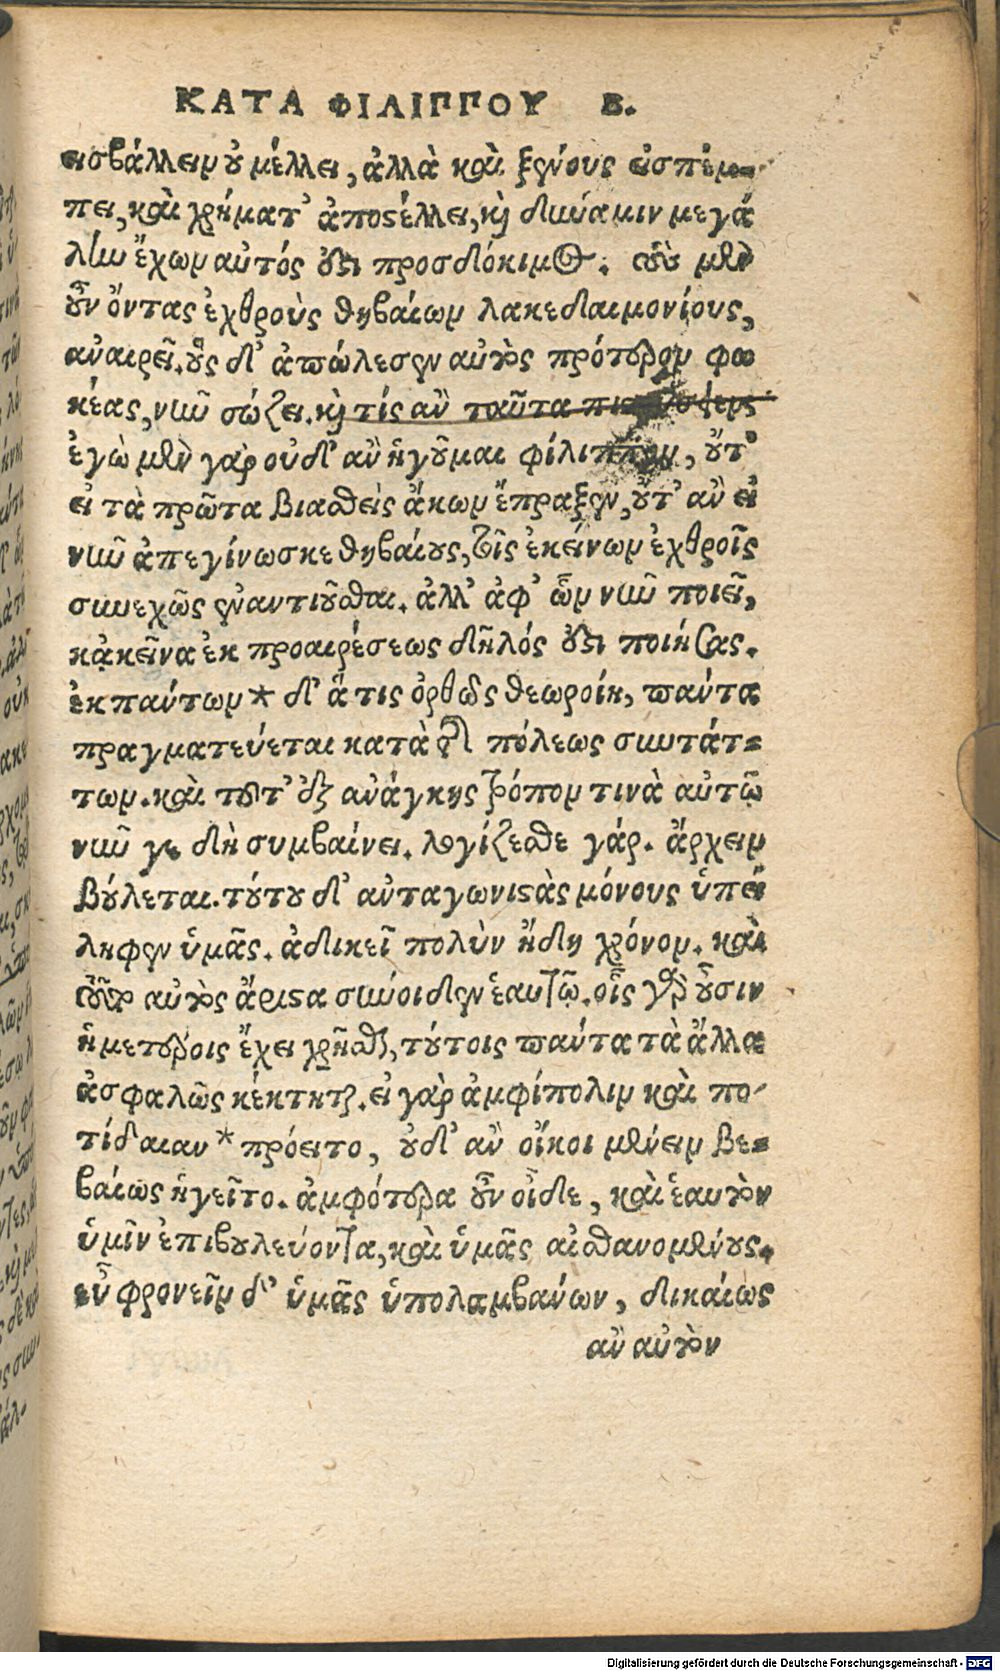 ΚΑΤΑ ΦΙΛΙΠΠΟΥ Β.
εἰσβάλλειν οὐ μέλλει, ἀλλὰ καὶ ξένους εἰσπέμ=
πει, καὶ χρήματ' ἀποστέλλει, καὶ δύναμιν μεγά
λην ἔχων αὐτός ἐστι προσδόκιμος. τοὺς μὲν
οὖν ὄντας ἐχθροὺς θηβαίων λακεδαιμονίους,
ἀναιρεῖ. οὓς δ' ἀπώλεσεν αὐτὸς πρότερον φω
κέας, νῦν σώζει. καὶ τίς ἂν ταῦτα
ἐγὼ μὲν γὰρ οὐδ' ἂν ἡγοῦμαι φίλιππον, οὔτ'
εἰ τὰ πρῶτα βιασθεὶς ἄκων ἔπραξεν, οὔτ' ἂν εἰ
νῦν ἀπεγίνωσκε θηβαίους, τοῖς ἐκείνων ἐχθροῖς
συνεχῶς ἐναντιοῦσθαι. ἀλλ' ἀφ' ὧν νῦν ποιεῖ,
κἀκεῖνα ἐκ προαιρέσεως δῆλός ἐστι ποιήσας.
ἐκ πάντων * δ' ἄ τις ὀρθῶς θεωροίη, πάντα
πραγματεύεται κατὰ τῆς πόλεως συντάτ=
των. καὶ τοῦτ' ἐξ ἀνάγκης τρόπον τινὰ αὐτῷ
νῦν γε δὴ συμβαίνει. λογίζεσθε γάρ. ἄρχειν
βούλεται. τούτου δ' ἀνταγωνιστὰς μόνους ὑπεί
ληφεν ὑμᾶς. ἀδικεῖ πολὺν ἤδη χρόνον. καὶ
τοῦτο αὐτὸς ἄριστα σύνοιδεν ἑαυτῷ. οἷς γὰρ οὖσιν
ἡμετέροις ἔχει χρῆσθαι, τούτοις πάντα τὰ ἄλλα
ἀσφαλῶς κέκτηται. εἰ γὰρ ἀμφίπολιν καὶ πο-
τίδαιαν * πρόειτο, οὐδ' ἂν οἴκοι μένειν βε=
βαίως ἡγεῖτο. ἀμφότερα οὖν οἶδε, καὶ ἑαυτὸν
ὑμῖν ἐπιβουλεύοντα, καὶ ὑμᾶς αἰσθανομένους.
εὖ φρονεῖν δ' ὑμᾶς ὑπολαμβάνων, δικαίως
ἂν αὐτὸν
Digitalisierung gefördert durch die Deutsche Forschungsgemeinschaft - DFG